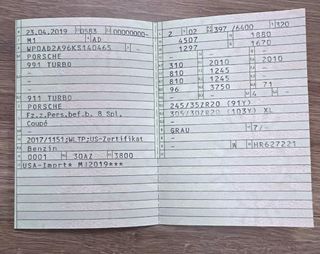 23.04.2019 0583 00000000-
M1 AD
WP0AD2A96KS140465 -
PORSCHE
991 TURBO
-
-
911 TURBO
PORSCHE
Fz.z.Pers.bef.b. 8 Spl.
Coupé
-
2017/1151;WLTP;US-Zertifikat
Benzin
0001 30AZ 3800
USA-Import* MJ2019***
2 02 397 /6400 320
4507 1880
1297 1670
-
310 2010 - 2010
810 1245 - -
810 1245 - -
96 3750 71
- - 4 -
245/35ZR20 (91Y)
305/30ZR20 (103Y) XL
GRAU 7/-
-
- - W HR627221
-
-